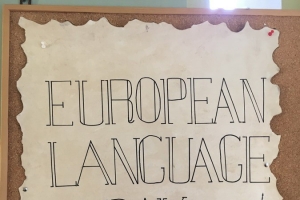 EUROPEAN
LANGUAGE